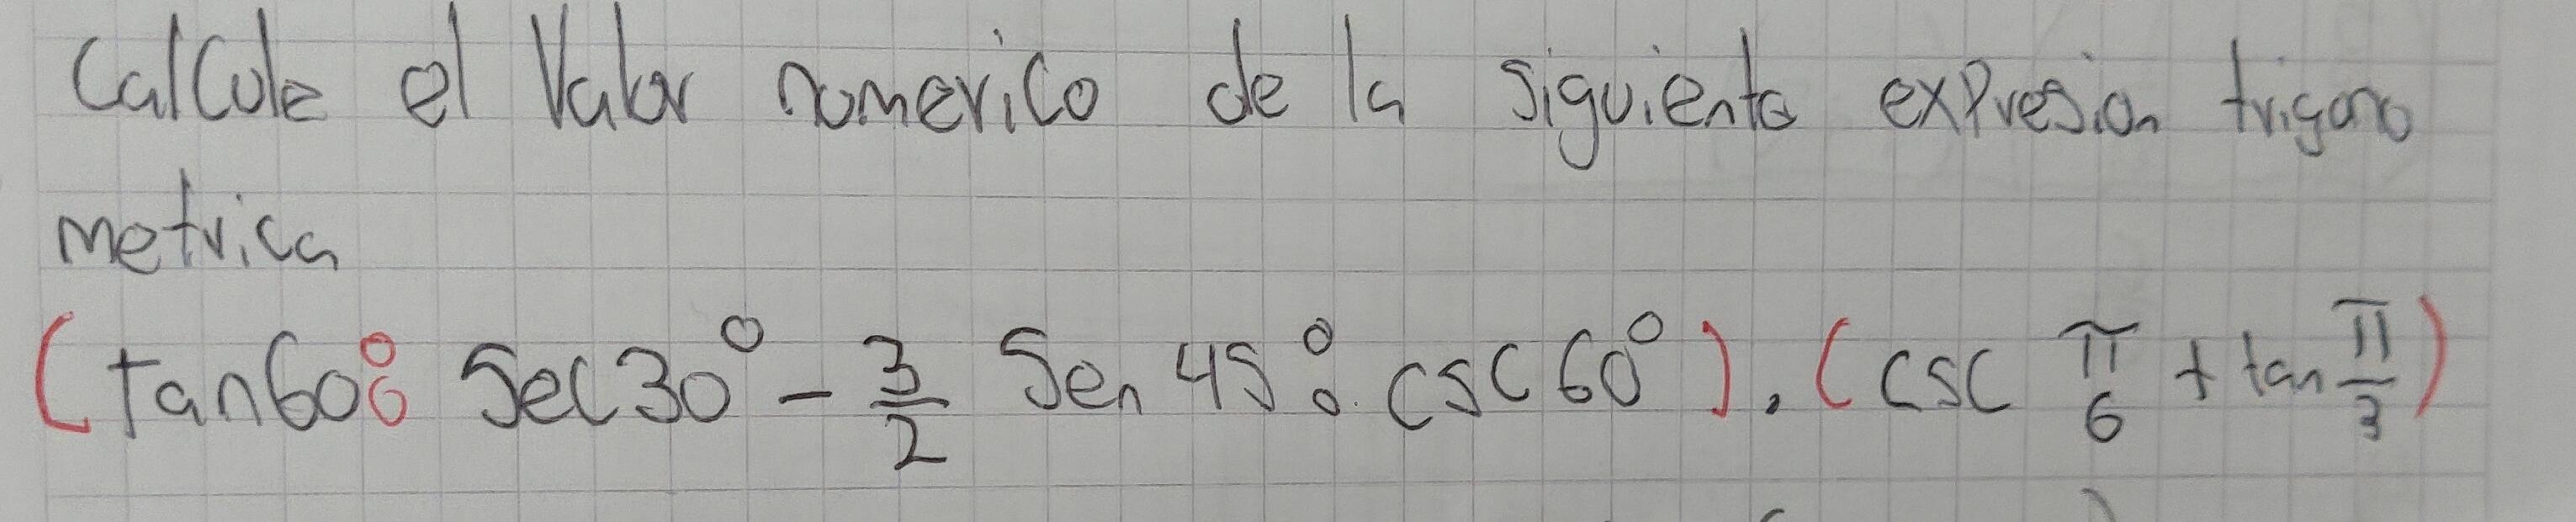 Calcule el Valor numerico de la siguiente expresion trigono
metrica
(tan60° · Sec30° - 3/2 Sen 45° · csc60°) · (csc π/6 + tan π/3)